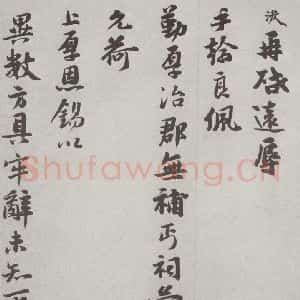 洪再啓遠辱
手捨良佩
勤厚冶郡無補丐祠
允荷
上厚恩錫以
異數方具牢辭未知
Shufawang.CN